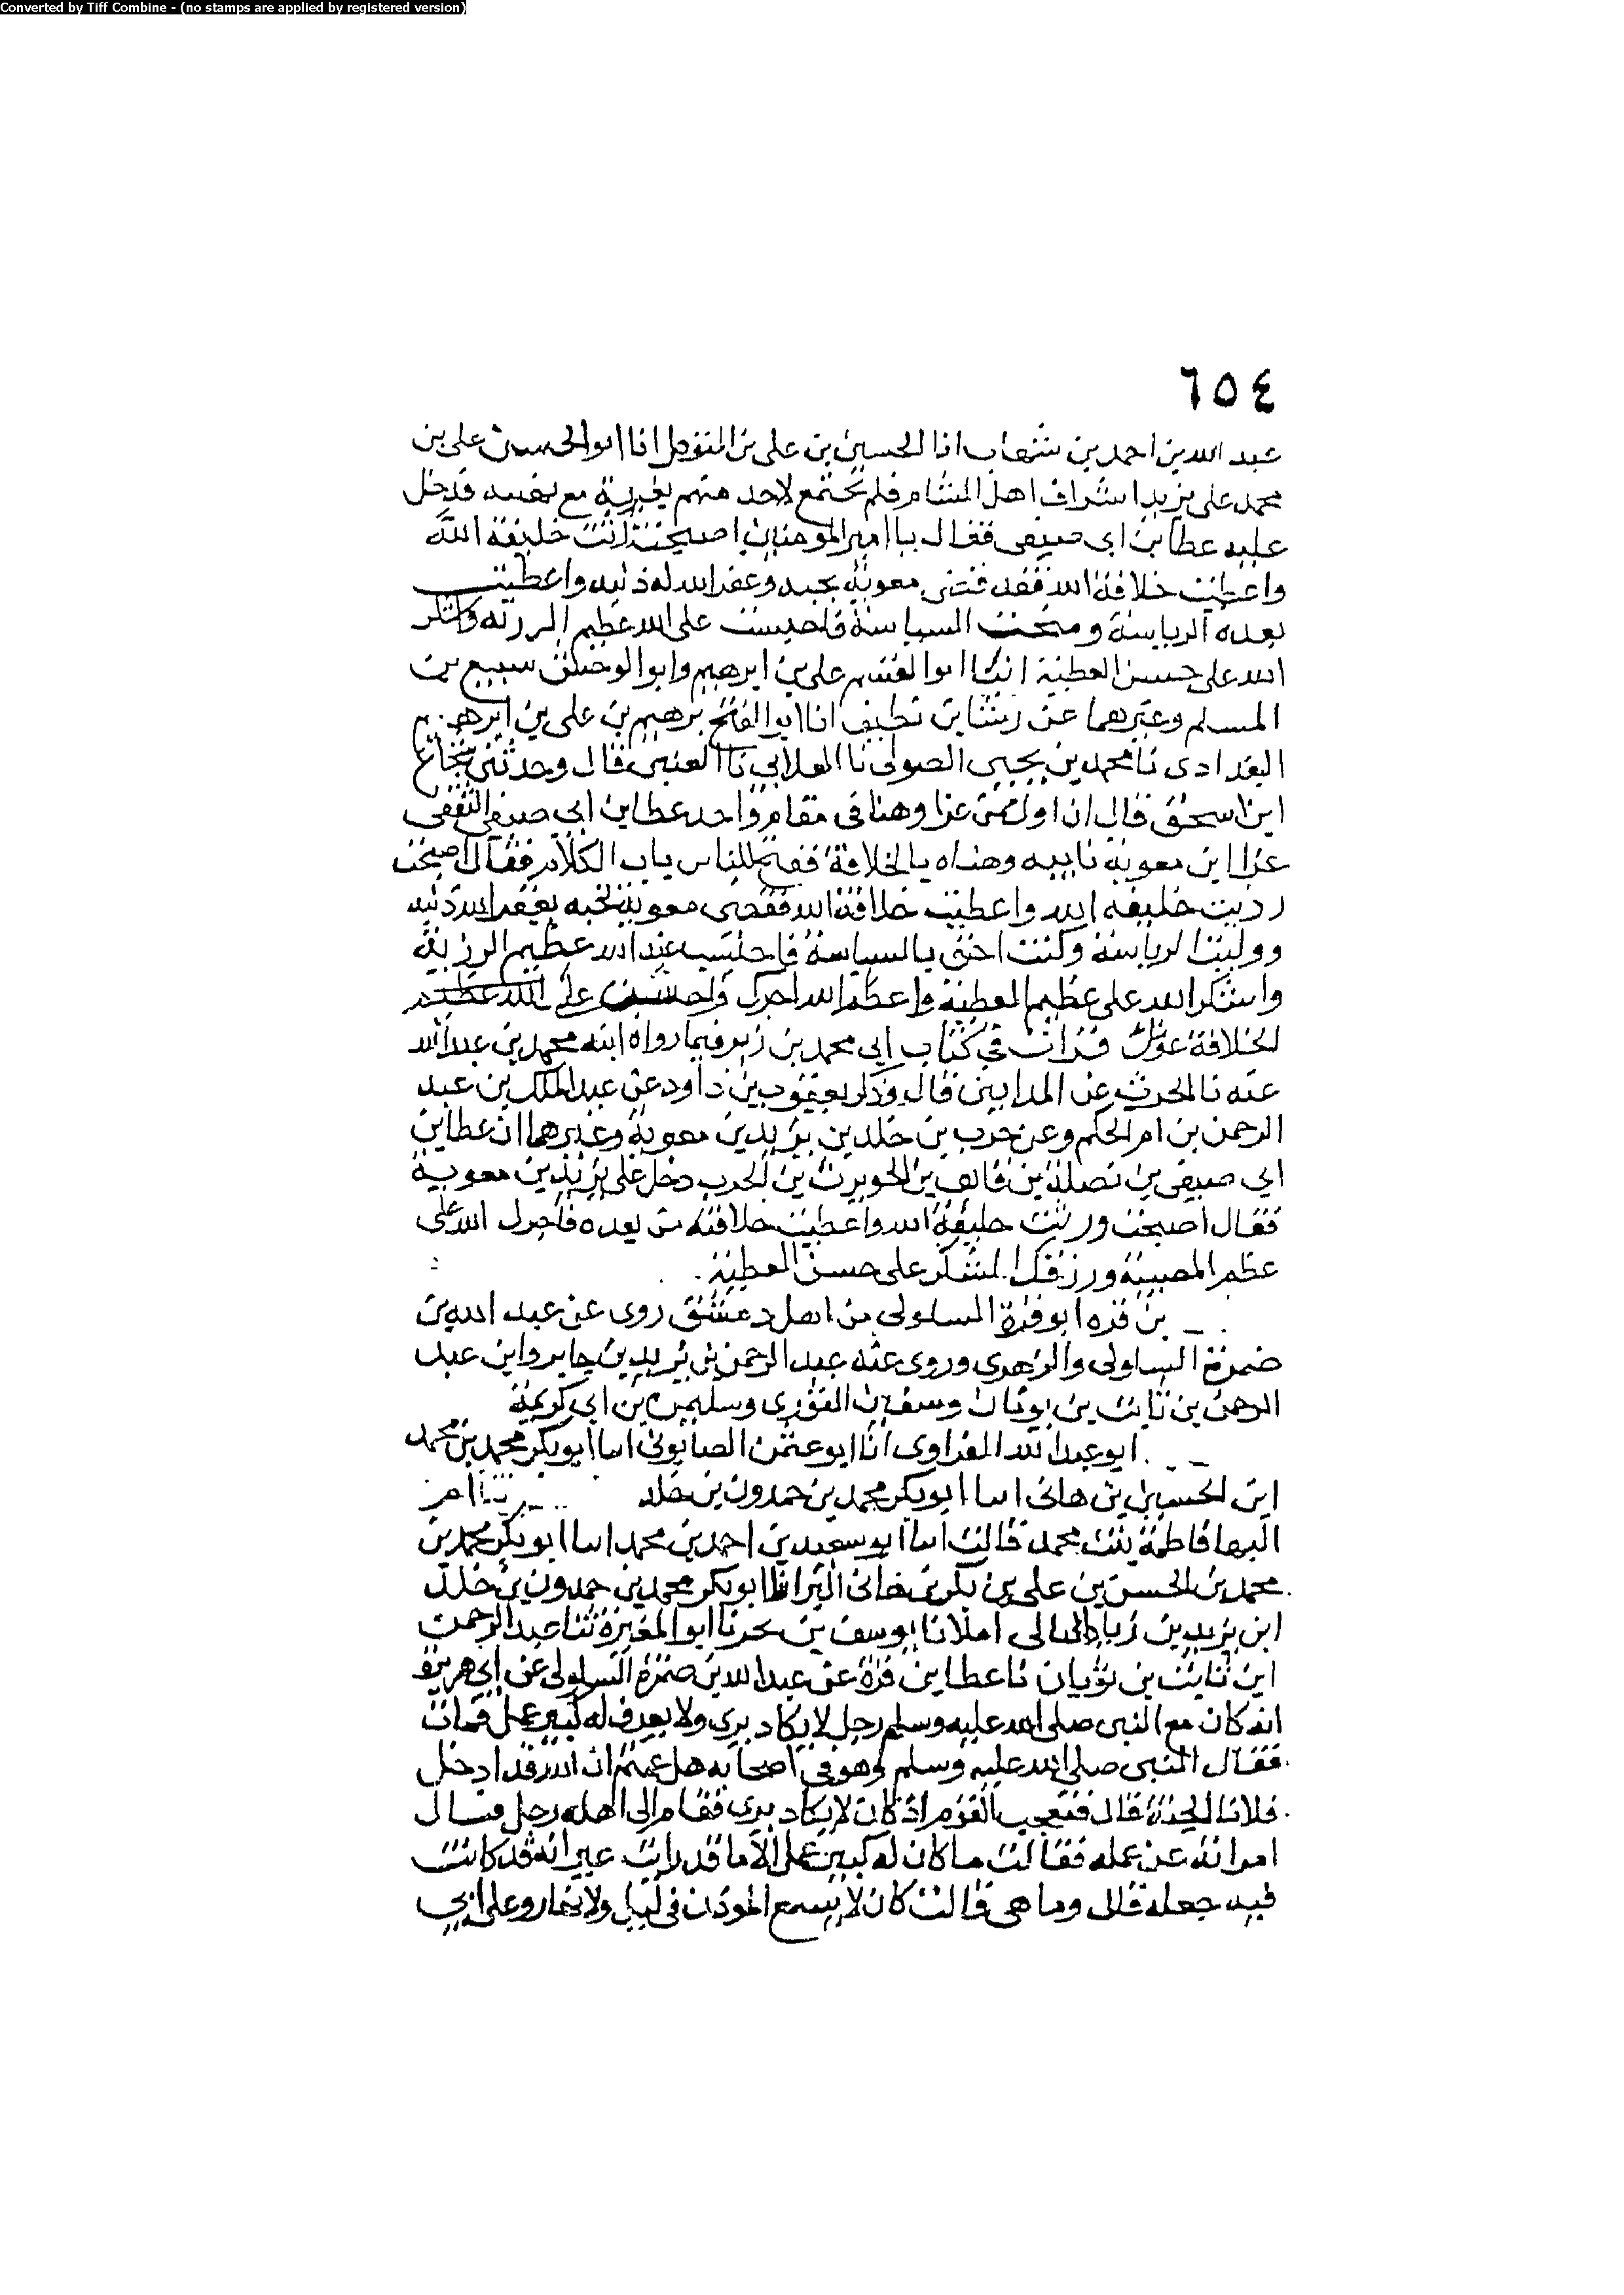 Converted by Tiff Combine - (no stamps are applied by registered version)
٦٥٤
عبد الله بن احمد بن شهاب انا الحسين بن على بن المتوكل انا ابو الحسن على بن
محمد على يزيد اشراف اهل الشام فلم يجتمع لاحد منهم تعزية مع تهنيه فدخل
عليه عطا بن ابى صيفى فقال يا امير المومنين اصبحت انت خليفة الله
واعطيت خلافة الله فقد قضى معوية نحبه وغفر الله له ذنبه واعطيت
بعده الرياسة ومنحت السياسة فاحتسب على الله عظيم الرزيه واشكر
الله على حسن العطية انبانا ابو القسم على بن ابرهيم وابو الوحش سبيع بن
المسلم وغيرهما عن رشا بن نظيف انا ابو الفتح ابرهيم بن على بن ابرهيم
البغدادى نا محمد بن يحيى الصولى نا الغلابي نا العتبى قال وحدثنى شجاع
ابن اسحق قال ان اول من عزا وهنا فى مقام واحد عطا بن ابي صيفى الثقفى
عزا ابن معوية بابيه وهناه بالخلافة ففتح للناس باب الكلام فقال اصبحت
رزيت خليفه الله واعطيت خلافة الله فقضى معوية نحبه يغفر الله ذنبه
ووليت الرياسة وكنت احق بالسياسة فاحتسب عند الله عظيم الرزية
واشكر الله على عظيم العطية واعظم الله اجرك واحسن على الله عظيم
الخلافة عونك قرات في كتاب ابي محمد بن زبر فيما رواه ابنه محمد بن عبد الله
عنه نا الحرث عن المدايني قال وذكر يعقوب بن داود عن عبد الملك بن عبد
الرحمن بن ام الحكم وعن حرب بن خلد بن يزيد بن معوية وغيرهما ان عطا بن
ابي صيفى بن نضلة بن قانف بن الحويرث بن الحرب دخل على يزيد بن معوية
فقال اصبحت ورثت خليفة الله واعطيت خلافته من بعده فاجرك الله على
عظم المصيبة ورزقك الشكر على حسن العطية
بن قره ابو قرة السلولى من اهل دمشق روى عن عبد الله بن
ضمرة السلولى والزهرى وروى عنه عبد الرحمن بن يزيد بن جابر وابن عبد
الرحمن بن ثابت بن ثوبان وسفين الثورى وسليمن بن ابى كريمة
ابو عبد الله الفراوى انا ابو عثمن الصابونى انا ابو بكر محمد بن محمد
ابن الحسين بن هانى انا ابو بكر محمد بن حمدون بن خلد
البها فاطمة بنت محمد قالت انا ابو سعيد بن احمد بن محمد انا ابو بكر محمد بن
محمد بن الحسن بن على بن بكر بن هانى البزاز انا ابو بكر محمد بن حمدون بن خلد
ابن يزيد بن زياد املا نا يوسف بن بحر نا ابو المغيرة ثنا عبد الرحمن
ابن ثابت بن ثوبان نا عطا بن قرة عن عبد الله بن ضمرة السلولى عن ابى هريرة
انه كان مع النبى صلى الله عليه وسلم رجل لا يكاد يرى ولا يعرف له كبير عمل فمات
فقال النبى صلى الله عليه وسلم وهو فى اصحابه هل علمتم ان الله قد ادخل
فلانا الجنة قال فتعجب القوم اذ كان لا يكاد يرى فقام الى اهله رجل فسال
امراته عن عمله فقالت ما كان له كبير عمل الا ما قد رايت غير انه قد كانت
فيه جعلة قال وما هى قالت كان لا يسمع الموذن فى ليل ولا نهار وعلى اى